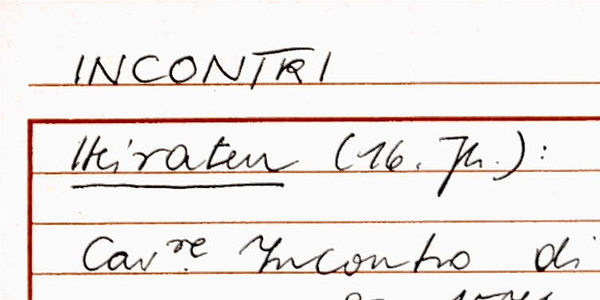 INCONTRI
Heiraten (16. Jh.):
Cav.re Incontro di